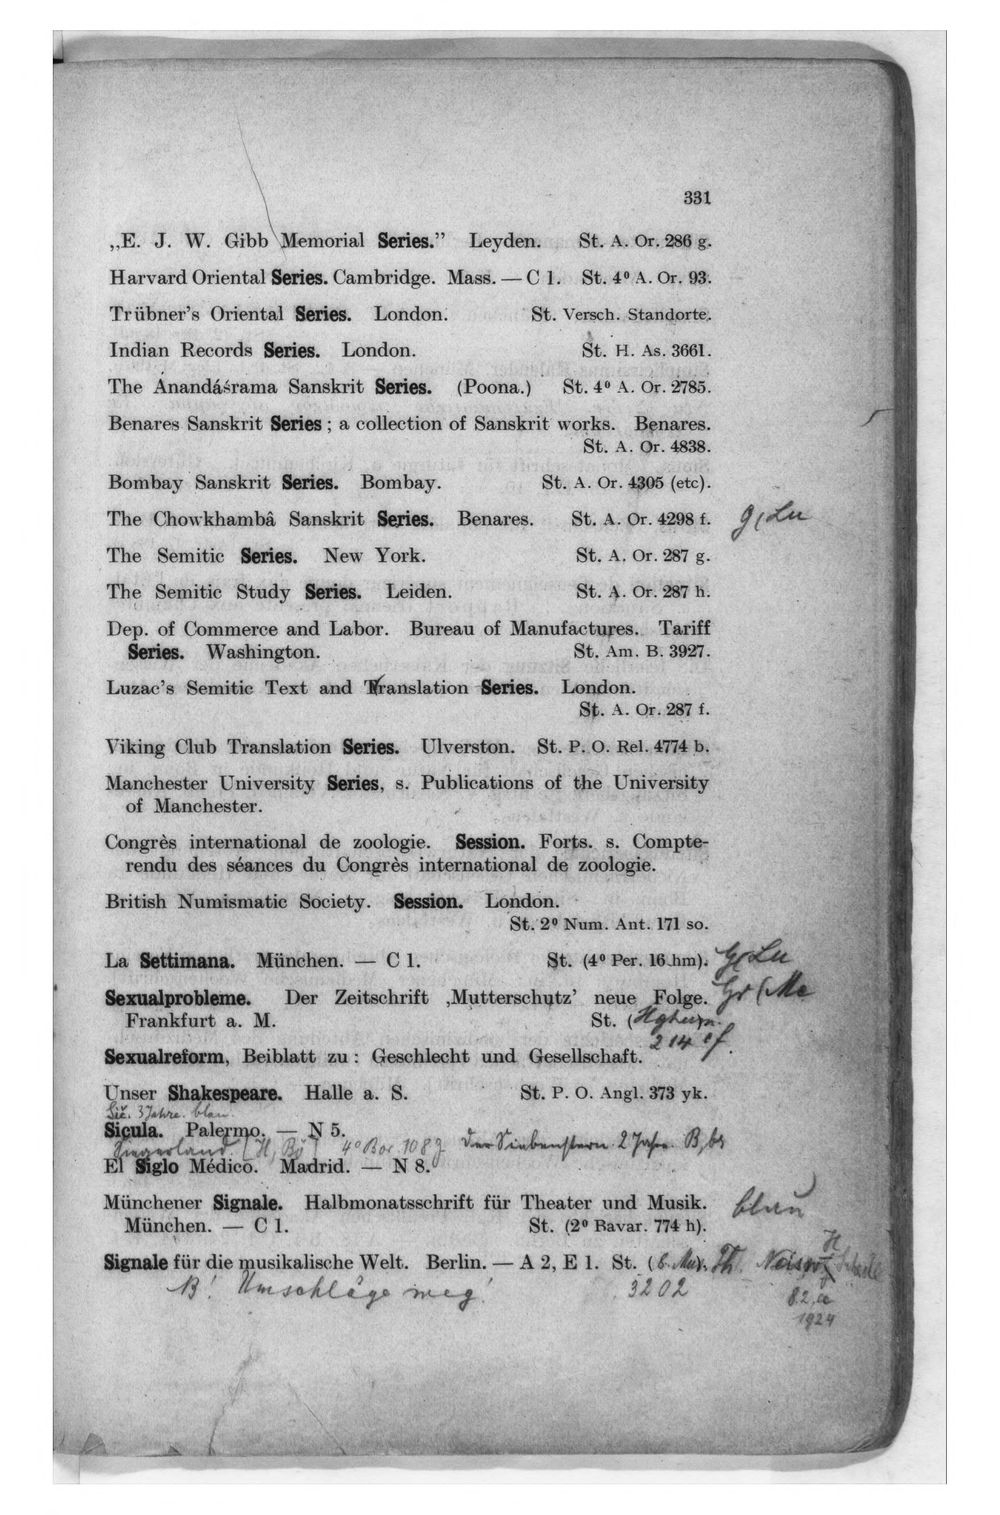 331
„E. J. W. Gibb Memorial Series.” Leyden. St. A. Or. 286 g.
Harvard Oriental Series. Cambridge. Mass. — C 1. St. 4⁰ A. Or. 93.
Trübner's Oriental Series. London. St. Versch. Standorte.
Indian Records Series. London. St. H. As. 3661.
The Ánandáśrama Sanskrit Series. (Poona.) St. 4⁰ A. Or. 2785.
Benares Sanskrit Series ; a collection of Sanskrit works. Benares.
St. A. Or. 4838.
Bombay Sanskrit Series. Bombay. St. A. Or. 4305 (etc).
The Chowkhambâ Sanskrit Series. Benares. St. A. Or. 4298 f. g (Lu
The Semitic Series. New York. St. A. Or. 287 g.
The Semitic Study Series. Leiden. St. A. Or. 287 h.
Dep. of Commerce and Labor. Bureau of Manufactures. Tariff
Series. Washington. St. Am. B. 3927.
Luzac's Semitic Text and Translation Series. London.
St. A. Or. 287 f.
Viking Club Translation Series. Ulverston. St. P. O. Rel. 4774 b.
Manchester University Series, s. Publications of the University
of Manchester.
Congrès international de zoologie. Session. Forts. s. Compte-
rendu des séances du Congrès international de zoologie.
British Numismatic Society. Session. London.
St. 2⁰ Num. Ant. 171 so.
La Settimana. München. — C 1. St. (4⁰ Per. 16 hm). Lu
Sexualprobleme. Der Zeitschrift ‚Mutterschutz’ neue Folge.
Frankfurt a. M. St. (
214 ef
Sexualreform, Beiblatt zu : Geschlecht und Gesellschaft.
Unser Shakespeare. Halle a. S. St. P. O. Angl. 373 yk.
3 Jahre. blau
Sicula. Palermo. — N 5.
Siegerland. 4⁰ Bor. 108 Der Siebenstern 2 Jahre
El Siglo Médico. Madrid. — N 8.
Münchener Signale. Halbmonatsschrift für Theater und Musik. blau
München. — C 1. St. (2⁰ Bavar. 774 h).
Signale für die musikalische Welt. Berlin. — A 2, E 1. St. ( Mus. Th.
B! Umschläge weg! 3202
1924